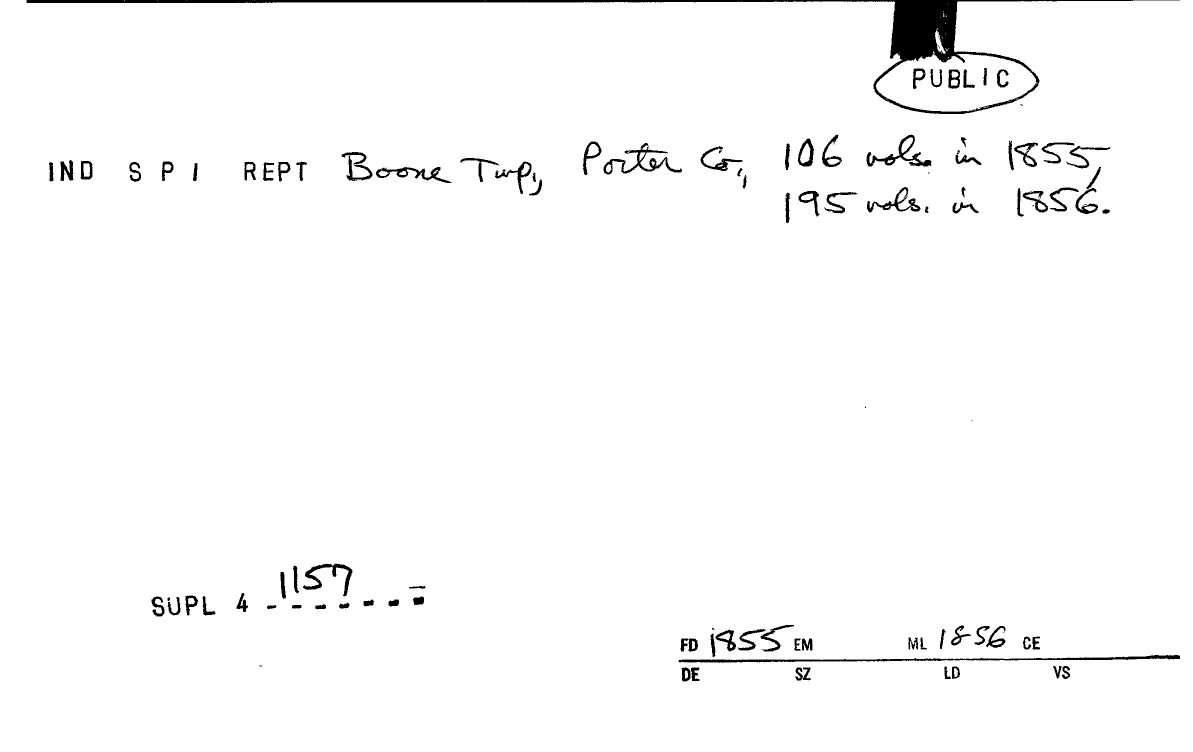 PUBLIC
IND S P I REPT Boone Twp., Porter Co., 106 vols. in 1855,
195 vols. in 1856.
SUPL 4 1157
FD 1855 EM ML 1856 CE
DE SZ LD VS